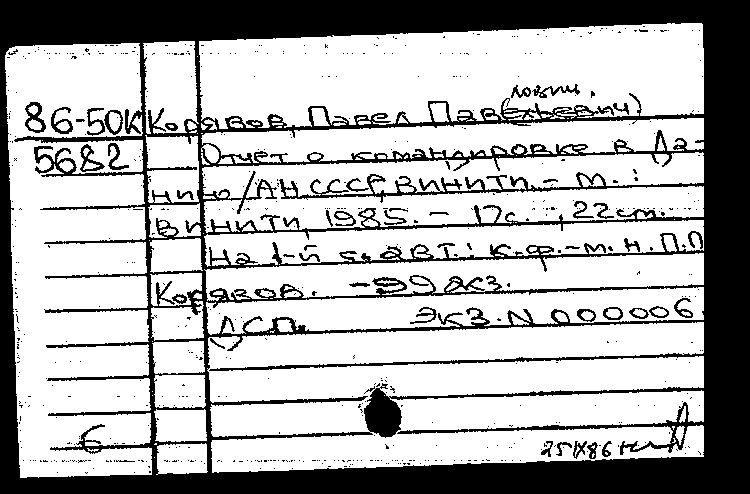 лович.
86-50К Корявов, Павел Паве(льевич)
5682 Отчет о командировке в Да-
нию / АН СССР, ВИНИТИ. - М. :
ВИНИТИ, 1985. - 17с. ; 22 см.
На 1-й с. авт.: к.ф.-м.н. П.П.
Корявов. - 99 экз.
ДСП. Экз. N 000006.
6
25 IX 86